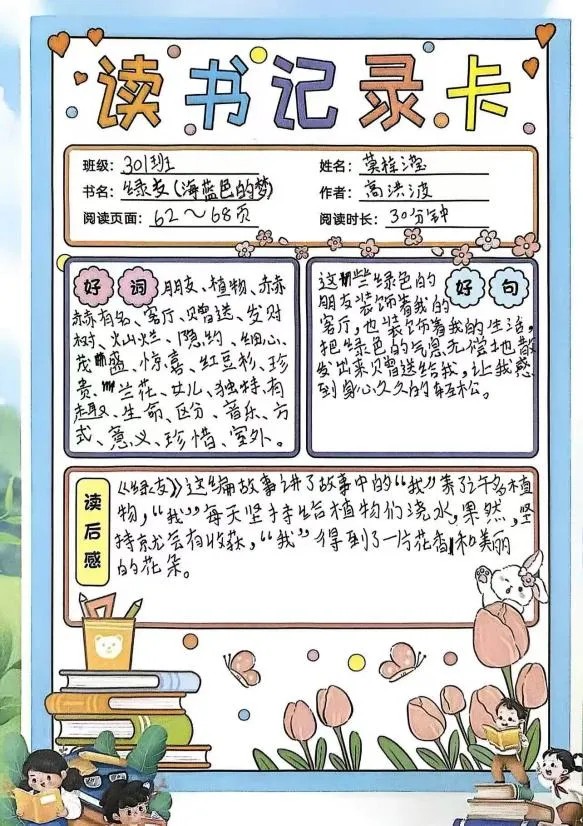 读书记录卡
班级：301班
姓名：莫桂滢
书名：绿友（海蓝色的梦）
作者：高洪波
阅读页面：62～68页
阅读时长：30分钟
好词
朋友、植物、赫
赫有名、客厅、赠送、发财
树、火山烂、隐约、细心、
茂盛、惊喜、红豆杉、珍
贵、兰花、女儿、独特、有
趣、生命、区分、音乐、方
式、意义、珍惜、室外。
好句
这些绿色的
朋友装饰着我的
客厅，也装饰着我的生活，
把绿色的气息无偿地散
发出来赠送给我，让我感
到身心久久的轻松。
读后感
《绿友》这编故事讲了故事中的“我”养了许多植
物，“我”每天坚持给植物们浇水，果然，坚
持就会有收获，“我”得到了一片花香和美丽
的花朵。